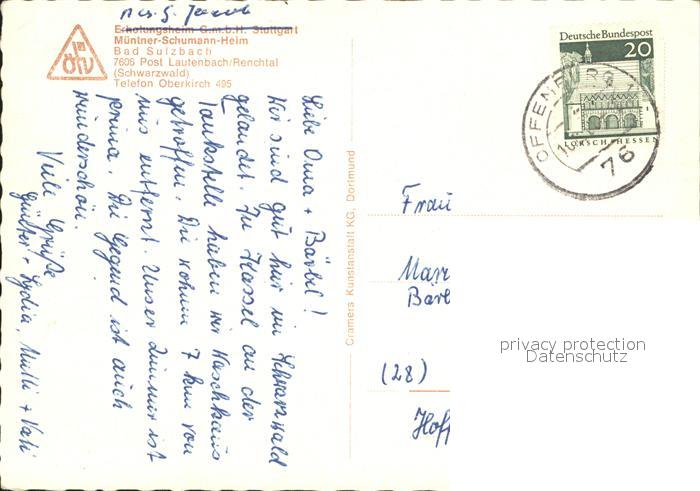 Abs. G. Jacob
Erholungsheim G.m.b.H. Stuttgart
Müntner-Schumann-Heim
Bad Sulzbach
7606 Post Lautenbach/Renchtal
(Schwarzwald)
Telefon Oberkirch 495
Liebe Oma + Bärbel!
Wir sind gut hier im Schwarzwald
gelandet. In Kassel an der
Tankstelle haben wir Waschkaus
getroffen. Die wohnen 7 km von
uns entfernt. Unser Zimmer ist
prima. Die Gegend ist auch
wunderschön.
Viele Grüße
Günter + Lydia, Mutti + Vati
Cramers Kunstanstalt KG, Dortmund
Deutsche Bundespost
20
LORSCH/HESSEN
OFFENBURG
76
Frau
Bärb
(28)
Hoff
privacy protection
Datenschutz